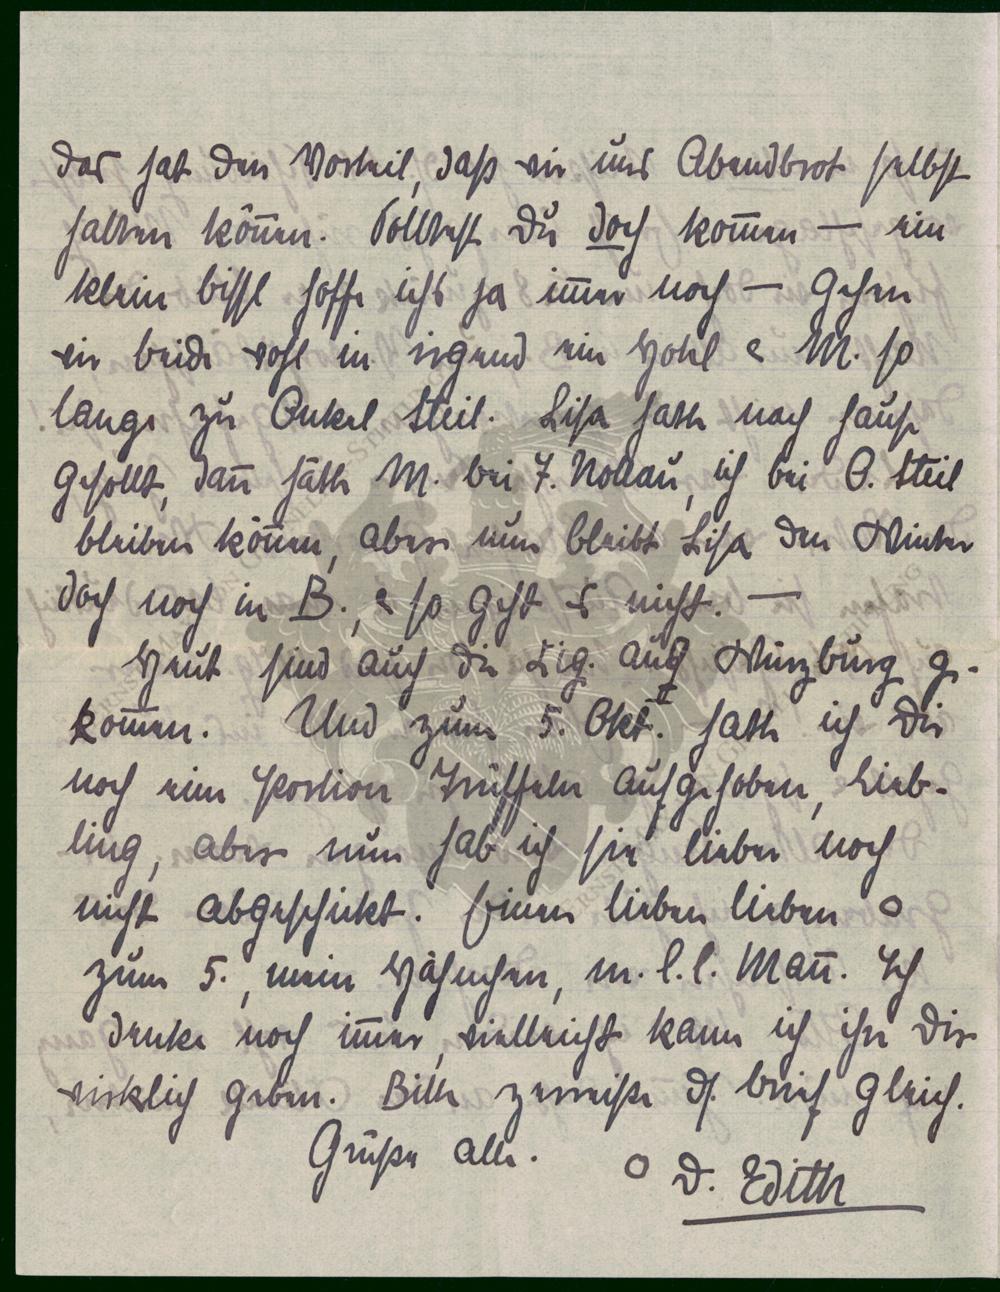 das hat den Vorteil, daß wir uns Abendbrot selbst
halten können. Solltest Du doch kommen — ein
klein bissl hoffe ichs ja immer noch — gehen
wir beide wohl in irgend ein Hotel & M. so
lange zu Onkel Steil. Lisa hatte nach Hause
gesollt, dann hätte M. bei F. Nollau, ich bei O. Steil
bleiben können, aber nun bleibt Lisa den Winter
doch noch in B., & so geht es nicht. —
Heut sind auch die Zig. aus Würzburg ge-
kommen. Und zum 5. Okt. hatte ich Dir
noch eine Portion Trüffeln aufgehoben, Lieb-
ling, aber nun hab ich sie lieber noch
nicht abgeschickt. Einen lieben lieben o
zum 5., mein Hähnchen, m. l. l. Mann. Ich
denke noch immer, vielleicht kann ich ihn Dir
wirklich geben. Bitte zerreiße ds. Brief gleich.
Grüße alle. o D. Edith